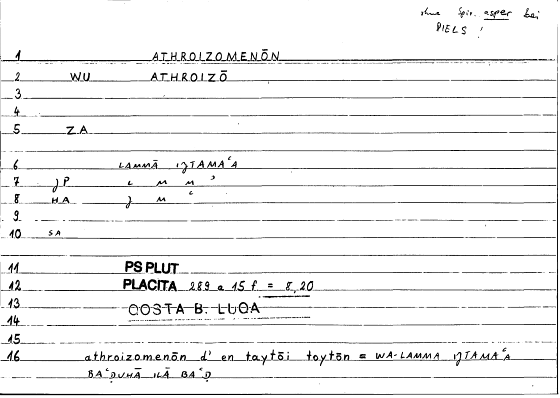 ohne Spir. asper bei
DIELS !
1 ATHROIZOMENŌN
2 WU ATHROIZŌ
3
4
5 ZA
6 LAMMĀ IǦTAMAʿA
7 ǦP L M M ʾ
8 HA Ǧ M ʿ
9
10 SA
11 PS PLUT
12 PLACITA 289 a 15 f = 8,20
13 QOSTA B. LUQA
14
15
16 athroizomenōn d' en taytōi toytōn = WA-LAMMA IǦTAMAʿA
BAʿḌUHĀ ILĀ BAʿḌ